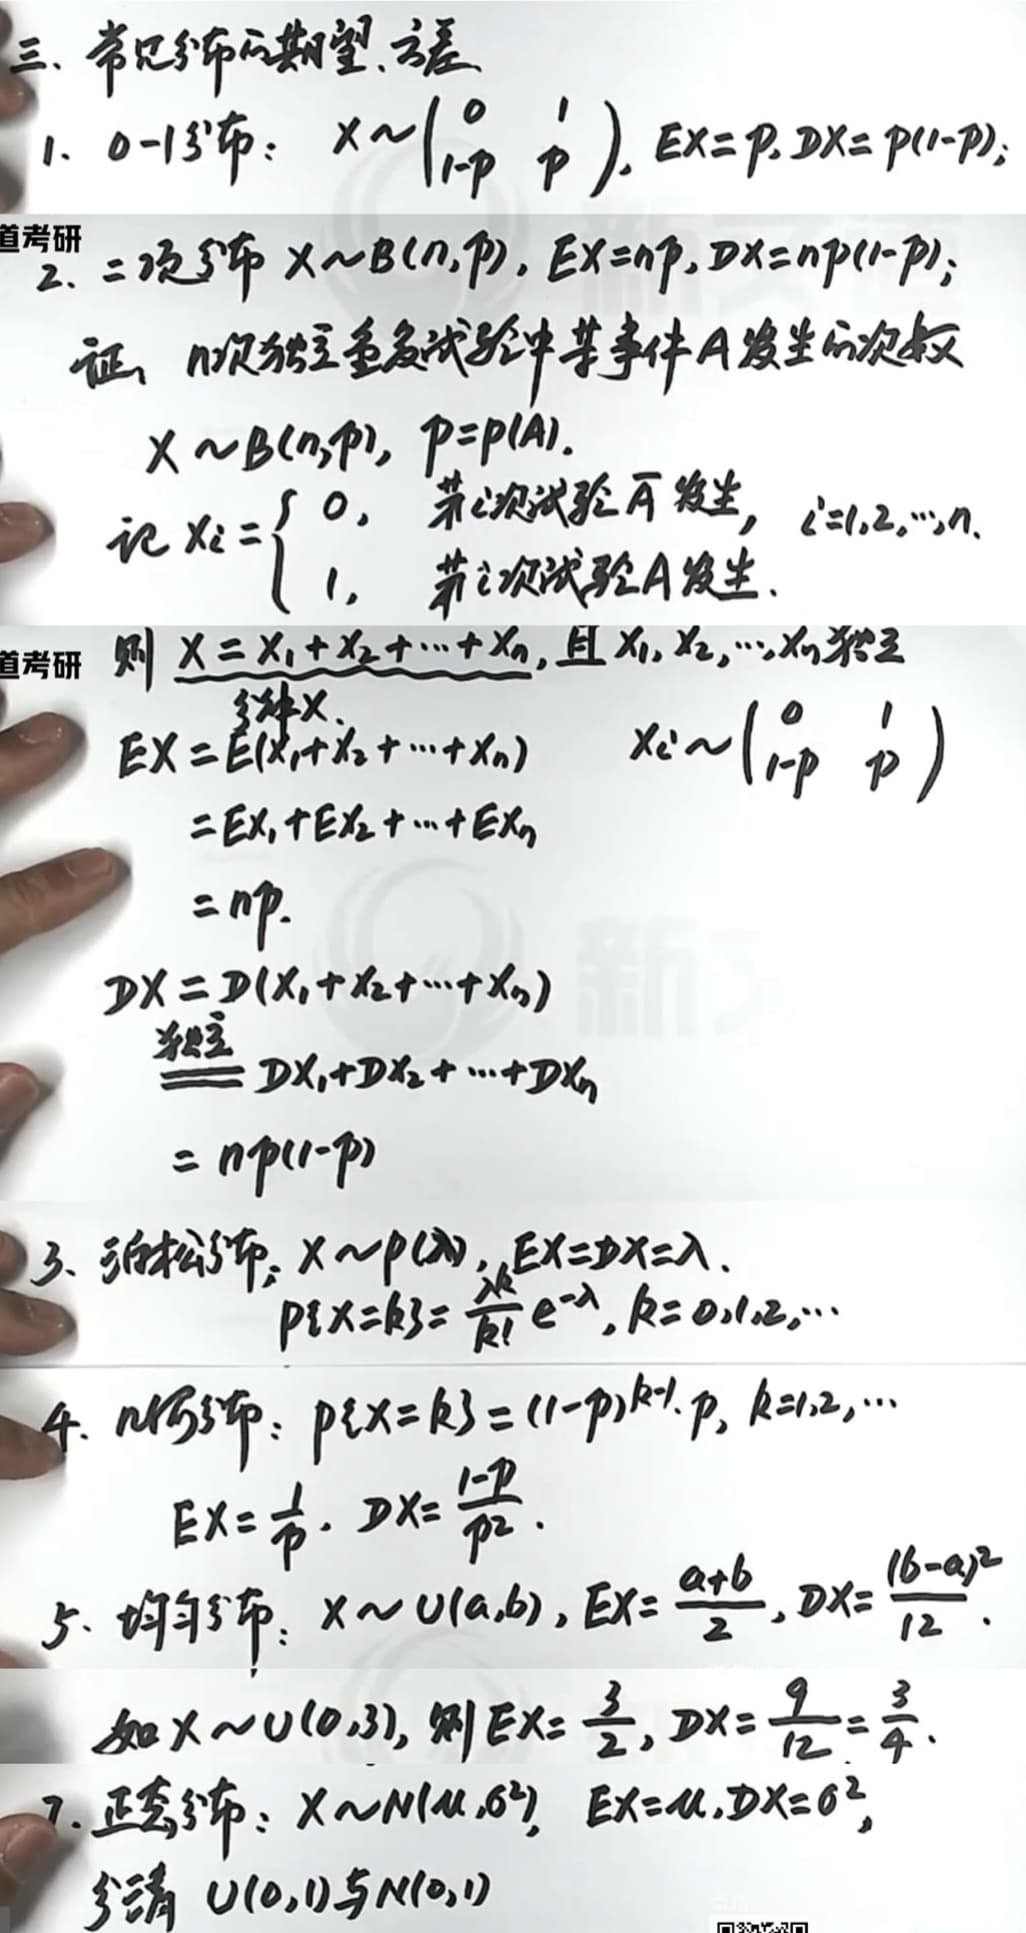 三、常见分布的期望、方差
1. 0-1分布: X~(0 1 / 1-p p). EX=p, DX=p(1-p);
道考研
2. 二项分布 X~B(n,p), EX=np, DX=np(1-p);
证、n次独立重复试验中某事件A发生的次数
X~B(n,p), p=P(A).
记 Xi={0, 第i次试验Ā发生, i=1,2,…,n.
1, 第i次试验A发生.
道考研 则 X=X₁+X₂+…+Xn, 且X₁,X₂,…,Xn独立
分解X.
Xi~(0 1 / 1-p p)
EX=E(X₁+X₂+…+Xn)
=EX₁+EX₂+…+EXn
=np.
DX=D(X₁+X₂+…+Xn)
独立
=DX₁+DX₂+…+DXn
=np(1-p)
3、泊松分布: X~P(λ), EX=DX=λ.
P{X=k}=λᵏ/k! e^-λ, k=0,1,2,…
4. 几何分布: P{X=k}=(1-p)^k-1·p, k=1,2,…
EX=1/p. DX=1-p/p².
5. 均匀分布: X~U(a,b), EX=a+b/2, DX=(b-a)²/12.
如X~U(0,3), 则EX=3/2, DX=9/12=3/4.
7. 正态分布: X~N(μ,σ²), EX=μ, DX=σ²,
分清 U(0,1)与N(0,1)